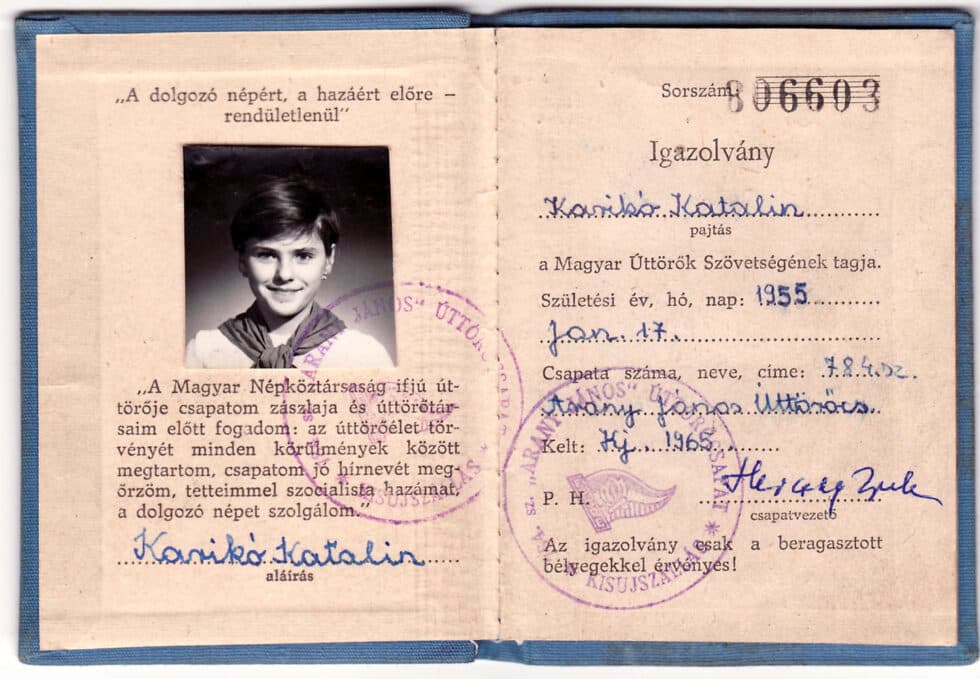 „A dolgozó népért, a hazáért előre –
rendületlenül"
„A Magyar Népköztársaság ifjú út-
törője csapatom zászlaja és úttörőtár-
saim előtt fogadom: az úttörőélet tör-
vényét minden körülmények között
megtartom, csapatom jó hírnevét meg-
őrzöm, tetteimmel szocialista hazámat,
a dolgozó népet szolgálom."
Karikó Katalin
aláírás
"ARANY JÁNOS" ÚTTÖRŐCSAPAT
KISÚJSZÁLLÁS
Sorszám: 806603
Igazolvány
Karikó Katalin
pajtás
a Magyar Úttörők Szövetségének tagja.
Születési év, hó, nap: 1955
Jan. 17.
Csapata száma, neve, címe: 784.sz.
Arany János Úttörőcs.
Kelt: Kj. 1965
P. H. Herceg
csapatvezető
Az igazolvány csak a beragasztott
bélyegekkel érvényes!
"ARANY JÁNOS" ÚTTÖRŐCSAPAT
KISUJSZÁLLÁS